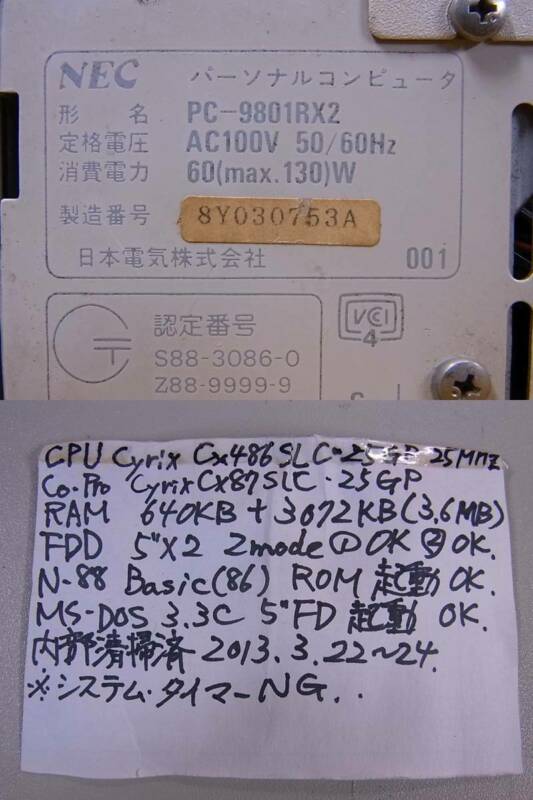 NEC パーソナルコンピュータ
形 名 PC-9801RX2
定格電圧 AC100V 50/60Hz
消費電力 60(max.130)W
製造番号 8Y030753A
日本電気株式会社 001
認定番号
S88-3086-0
Z88-9999-9
VCI
4
CPU Cyrix Cx486SLC-25GP 25MHz
Co.Pro Cyrix CX87SLC-25GP
RAM 640KB + 3072KB(3.6MB)
FDD 5"X2 2mode ① OK ② OK.
N-88 Basic(86) ROM 起動 OK.
MS-DOS 3.3C 5"FD 起動 OK.
内部清掃済 2013.3.22〜24.
※システム・タイマーNG..